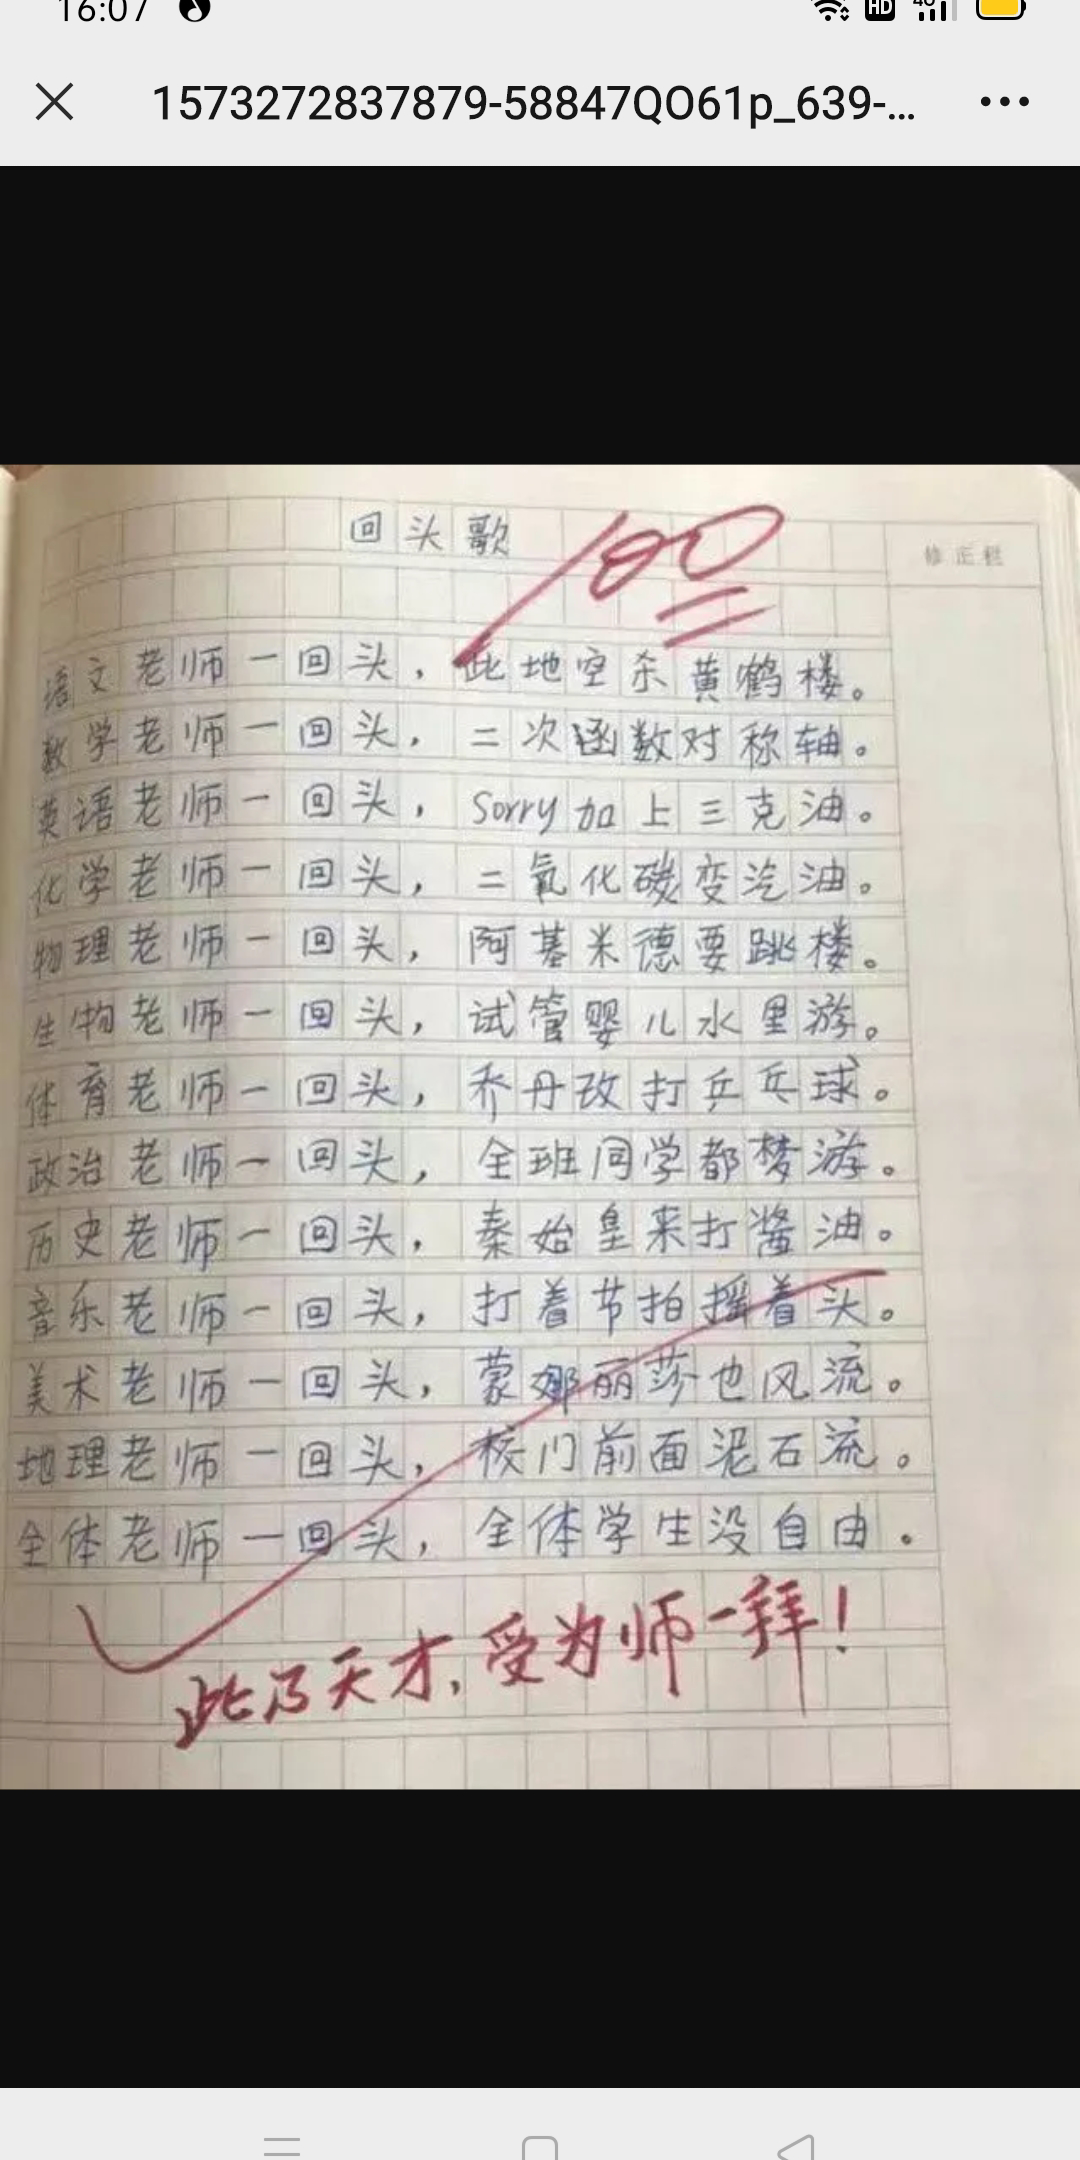 16:07
HD 4G
1573272837879-58847QO61p_639-...
回头歌
100
修正栏
语文老师一回头，此地空杀黄鹤楼。
数学老师一回头，二次函数对称轴。
英语老师一回头，Sorry加上三克油。
化学老师一回头，二氧化碳变汽油。
物理老师一回头，阿基米德要跳楼。
生物老师一回头，试管婴儿水里游。
体育老师一回头，乔丹改打乒乓球。
政治老师一回头，全班同学都梦游。
历史老师一回头，秦始皇来打酱油。
音乐老师一回头，打着节拍摇着头。
美术老师一回头，蒙娜丽莎也风流。
地理老师一回头，校门前面泥石流。
全体老师一回头，全体学生没自由．
此乃天才，受为师一拜！